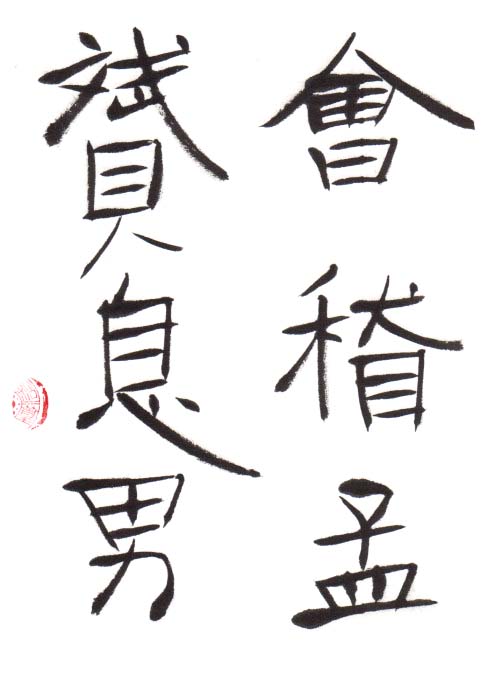 會稽孟
贇息男